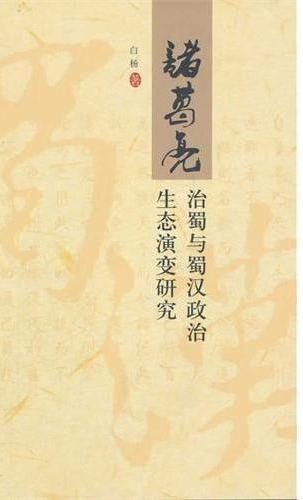 諸葛亮
治蜀与蜀汉政治
生态演变研究
白杨 著